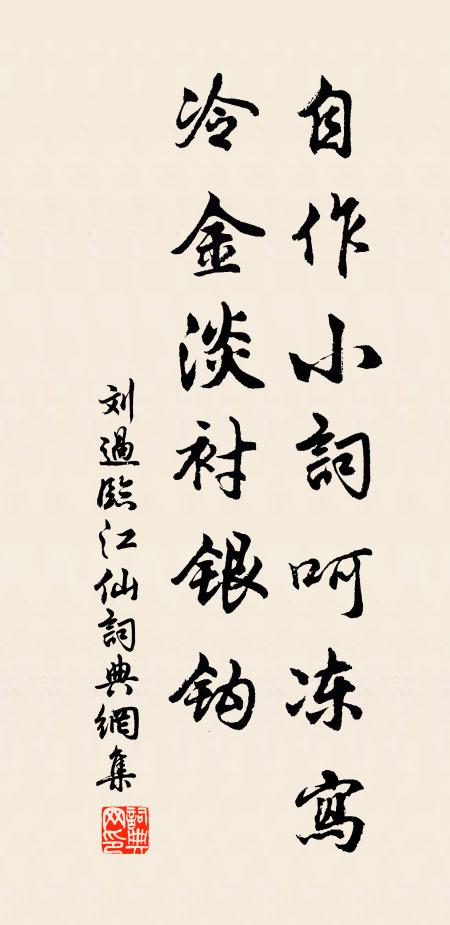 自作小詞呵冻寫
冷金淡衬銀钩
刘過臨江仙詞典網集
詞典网印